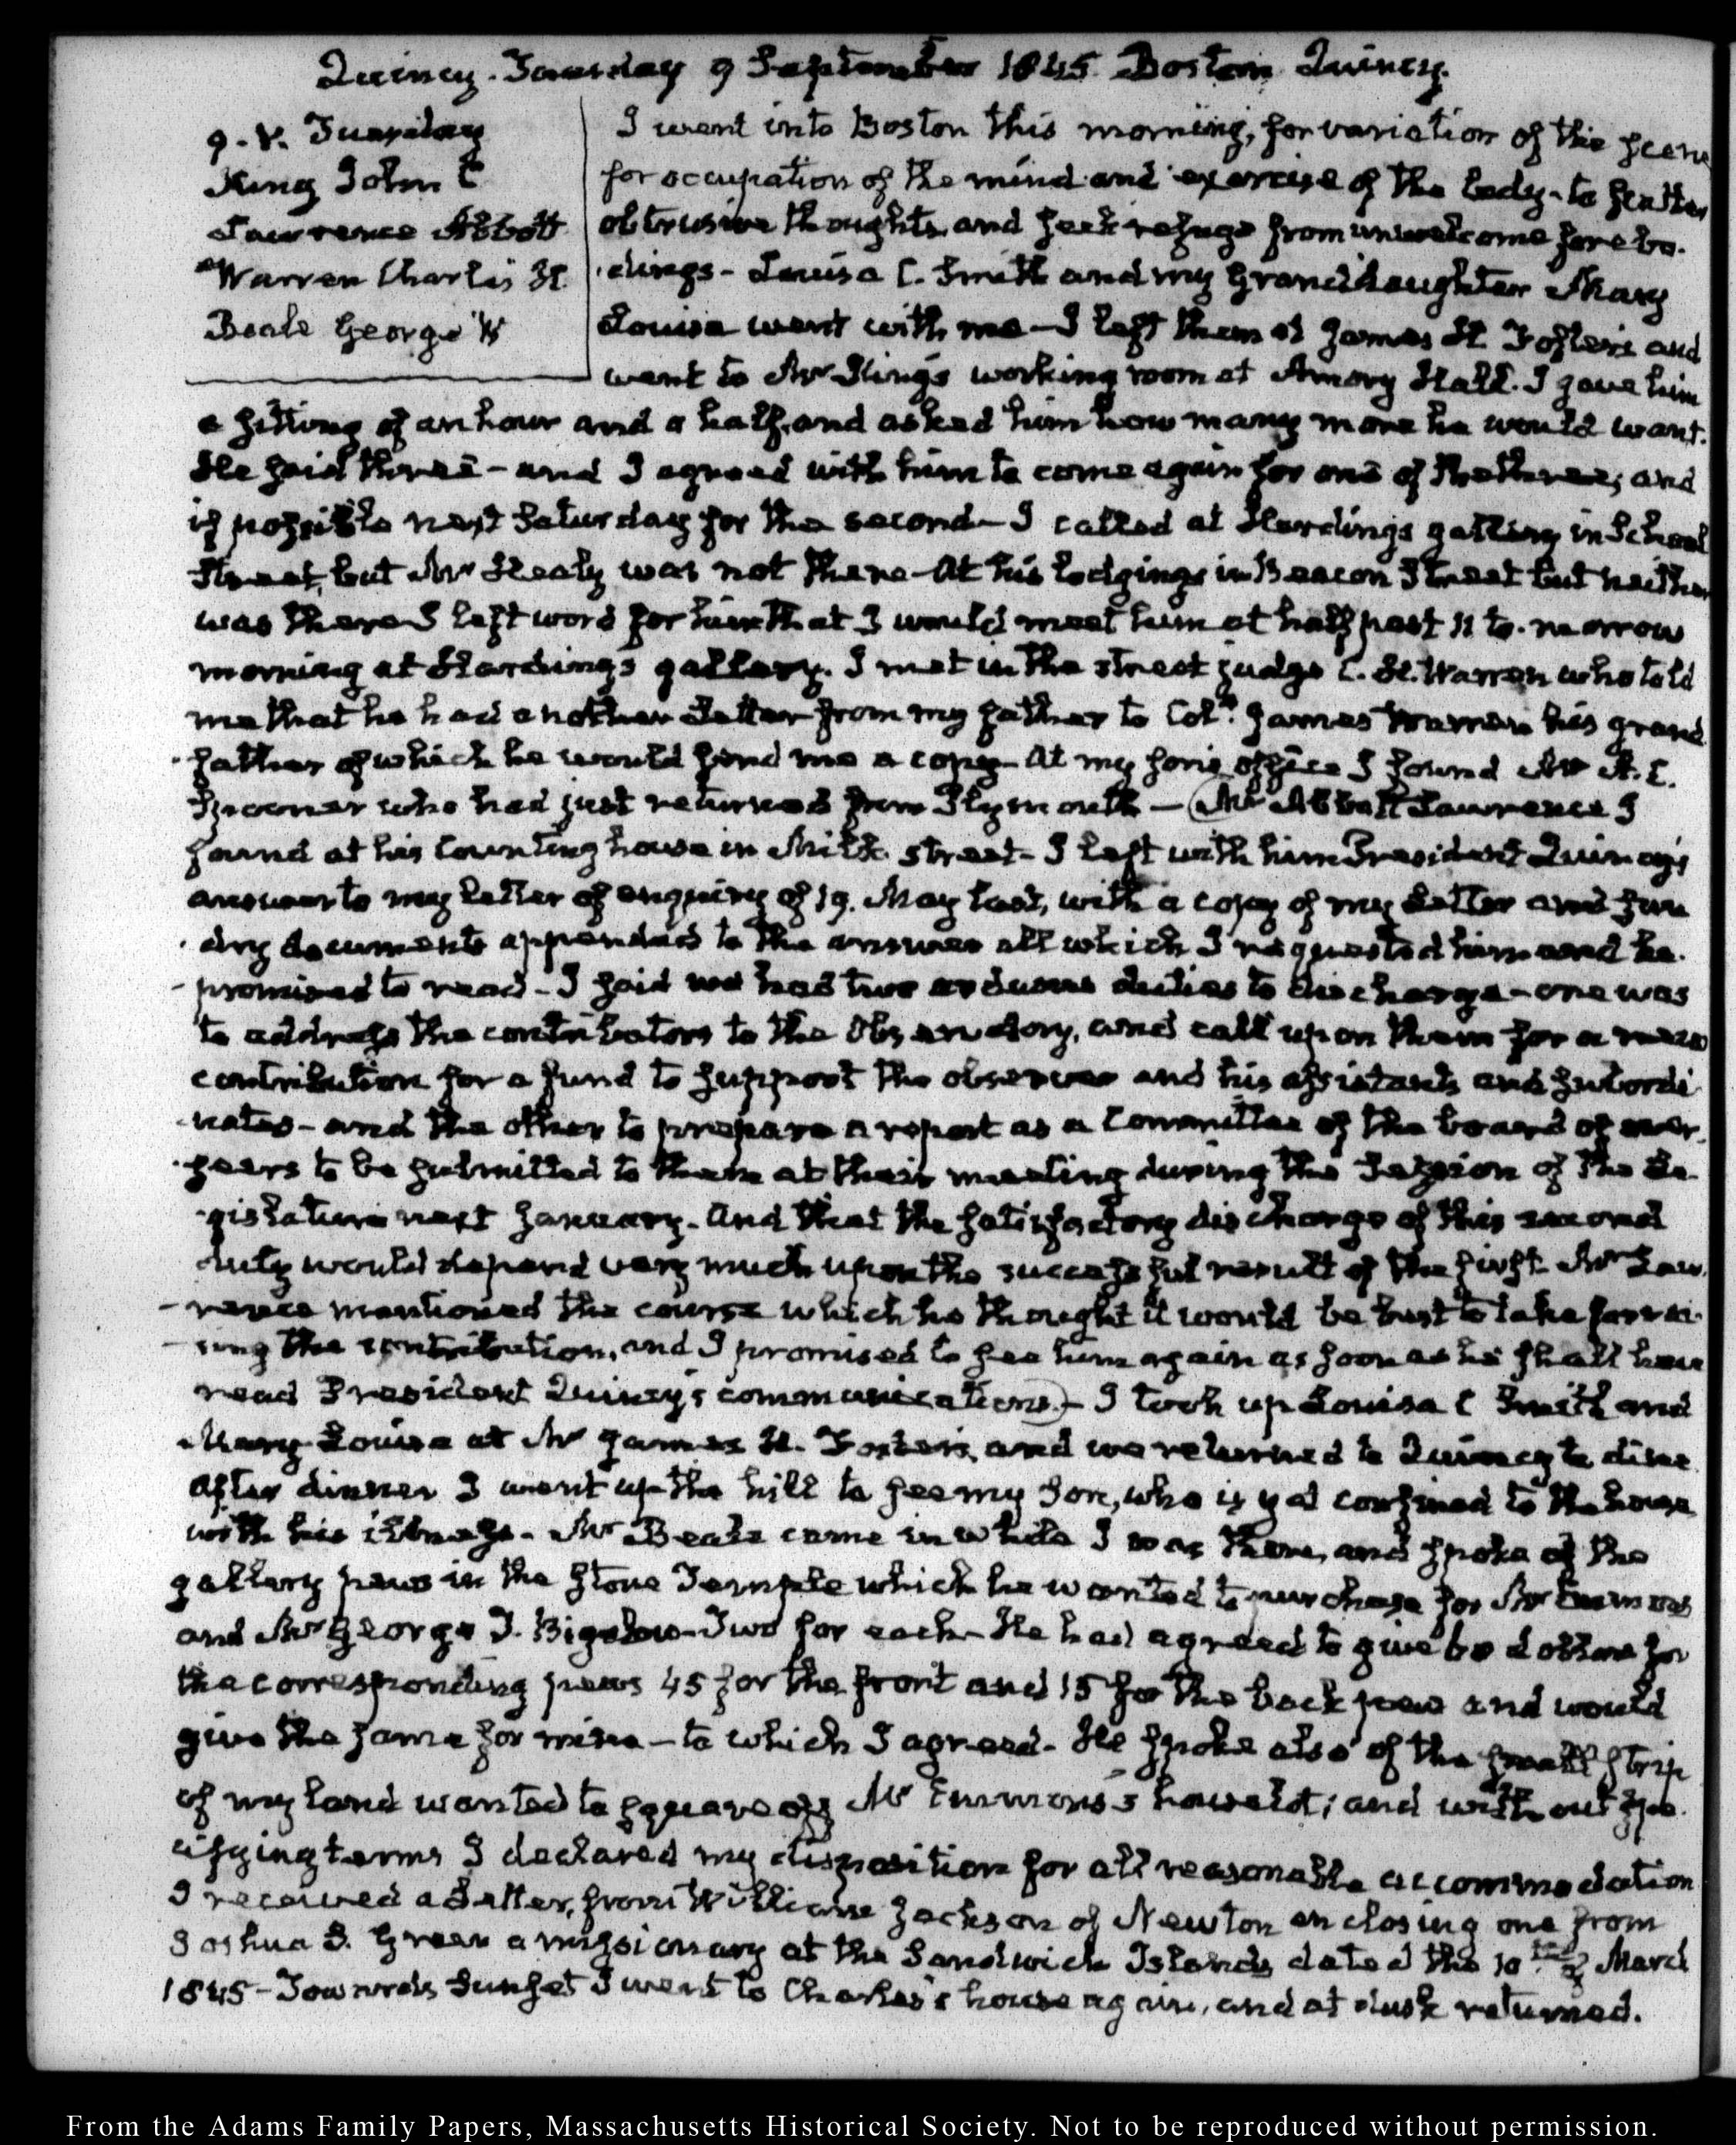 Quincy. Tuesday 9 September 1845. Boston Quincy.
9. V. Tuesday
King John C
Lawrence Abbott
Warren Charles H.
Beale George W
I went into Boston this morning, for variation of the scene
for occupation of the mind and exercise of the body- to scatter
obtrusive thoughts, and seek refuge from unwelcome forebo-
dings- Louisa C. Smith and my Granddaughter Mary
Louisa went with me- I left them at James H. Foster's and
went to Mr King's working room at Amory Hall. I gave him
a sitting of an hour and a half, and asked him how many more he would want.
He said three- and I agreed with him to come again for one of the three; and
if possible next Saturday for the second- I called at Harding's gallery in School
Street, but Mr Healy was not there- At his lodgings in Beacon Street but neither
was there I left word for him that I would meet him at half past 11 to-morrow
morning at Harding's gallery. I met in the street judge C. H. Warren who told
me that he had another Letter from my father to Coll. James Warren his grand
father of which he would send me a copy- At my son's office I found Mr A. C.
Spooner who had just returned from Plymouth- (Mr Abbott Lawrence I
found at his Counting house in Milk street- I left with him President Quincy's
answer to my Letter of enquiry of 19. May last, with a copy of my Letter and sun
dry documents appended to the answer all which I requested him and he
promised to read- I said we had two arduous duties to discharge- one was
to address the contributors to the Observatory, and call upon them for a new
contribution for a fund to support the observer and his assistants and subordi
nates- and the other to prepare a report as a Committee of the board of over
seers to be submitted to them at their meeting during the Session of the Le-
gislature next January. And that the satisfactory discharge of this second
duty would depend very much upon the successful result of the first. Mr Law
rence mentioned the course which he thought it would be best to take for rai-
sing the contribution, and I promised to see him again as soon as he shall have
read President Quincy's communications)- I took up Louisa C Smith and
Mary Louisa at Mr James H. Foster's, and we returned to Quincy to dine
After dinner I went up the hill to see my Son, who is yet confined to the house
with his illness- Mr Beale came in while I was there, and spoke of the
gallery pews in the Stone Temple which he wanted to purchase for Mr Emmons
and Mr George T. Bigelow- Two for each- He had agreed to give 60 dollars for
the corresponding pews 45 for the front and 15 for the back pew and would
give the same for mine- to which I agreed- He spoke also of the small strip
of my land wanted to square off Mr Emmons's house lot; and without spe
cifying terms I declared my disposition for all reasonable accommodation
I received a Letter, from William Jackson of Newton enclosing one from
Joshua S. Green a missionary at the Sandwich Islands dated the 10th of March
1845- Towards Sunset I went to Charles's house again, and at dusk returned.
From the Adams Family Papers, Massachusetts Historical Society. Not to be reproduced without permission.